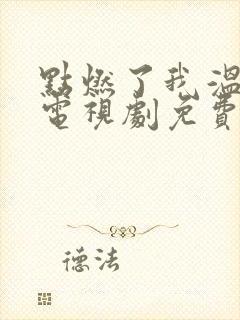 點燃了我溫
電視劇免費
德法